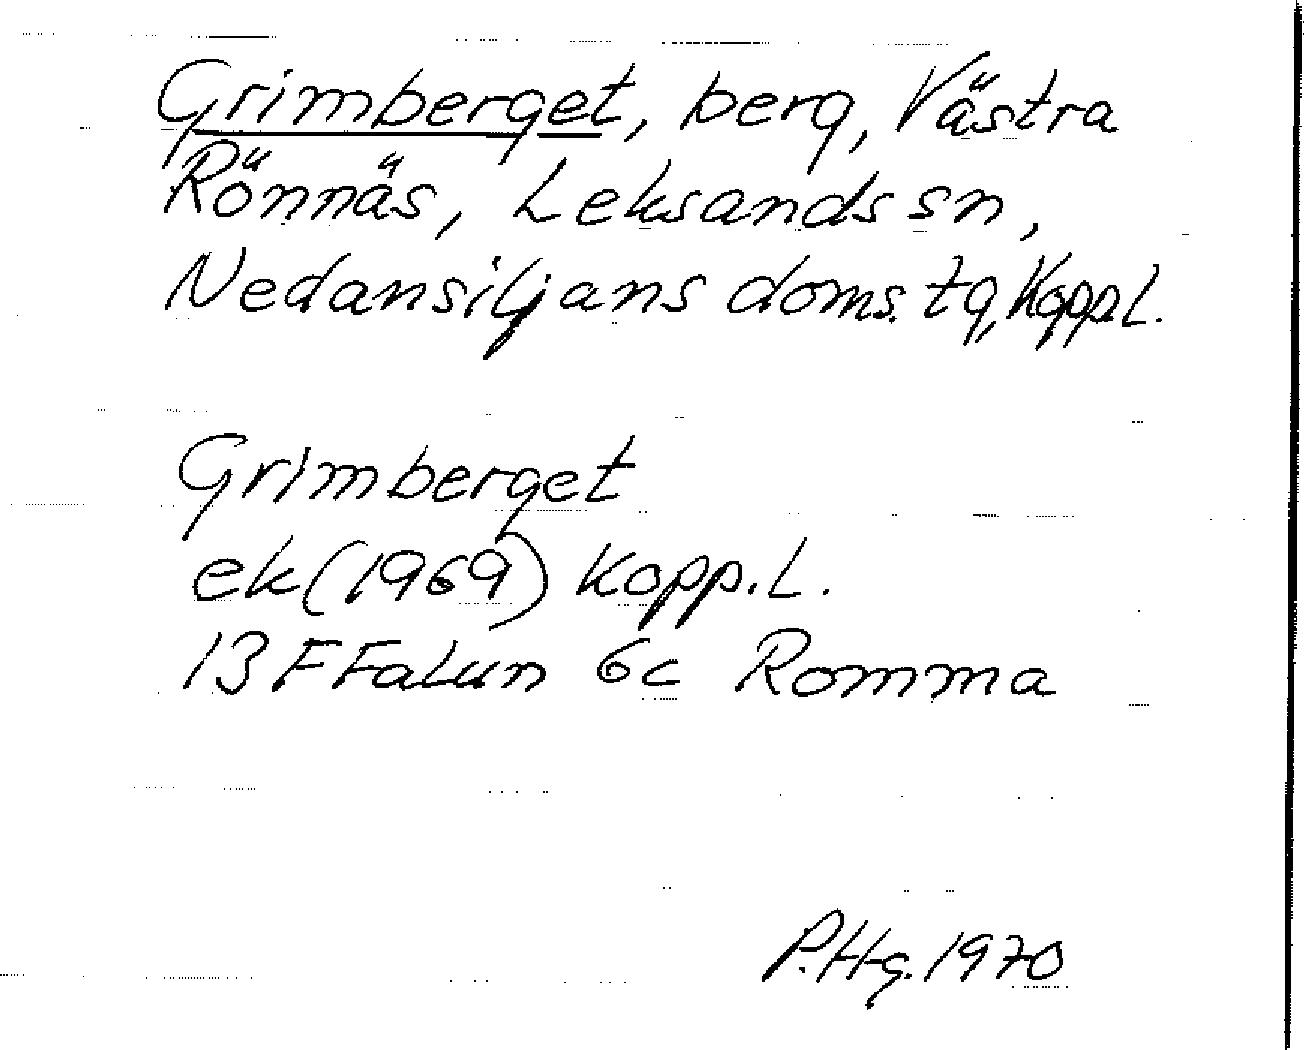 Grimberget, berg, Västra
Rönnäs, Leksands sn,
Nedansiljans doms. tg, Kopp.L.
Grimberget
ek (1969) Kopp.L.
13F Falun 6c Romma
P.Hg. 1970